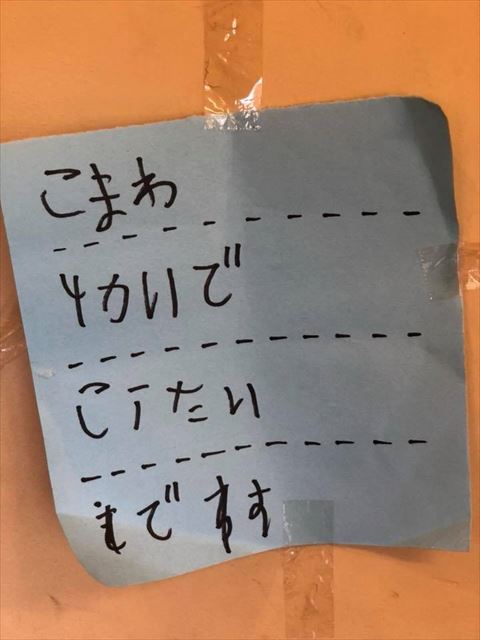 こまわ
4かいで
こうたい
まで す